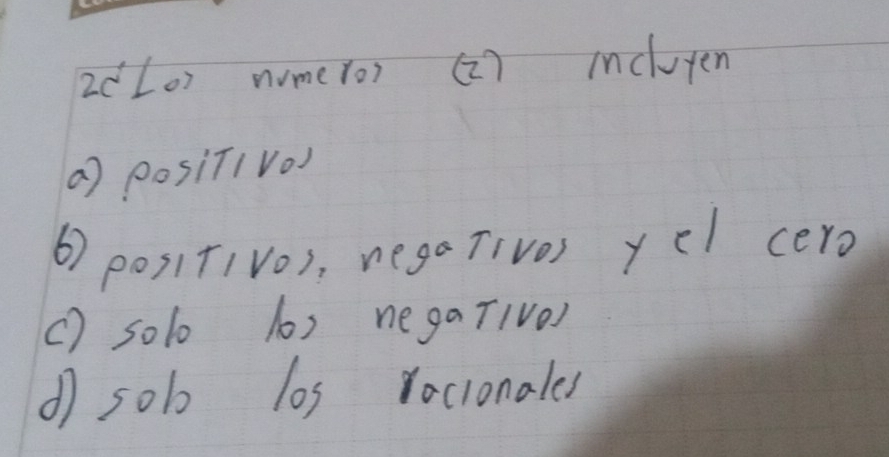 2d Los numeros (z) incluyen
a) positivos
b) positivos, negativos y el cero
c) solo los negativos
d) solo los racionales